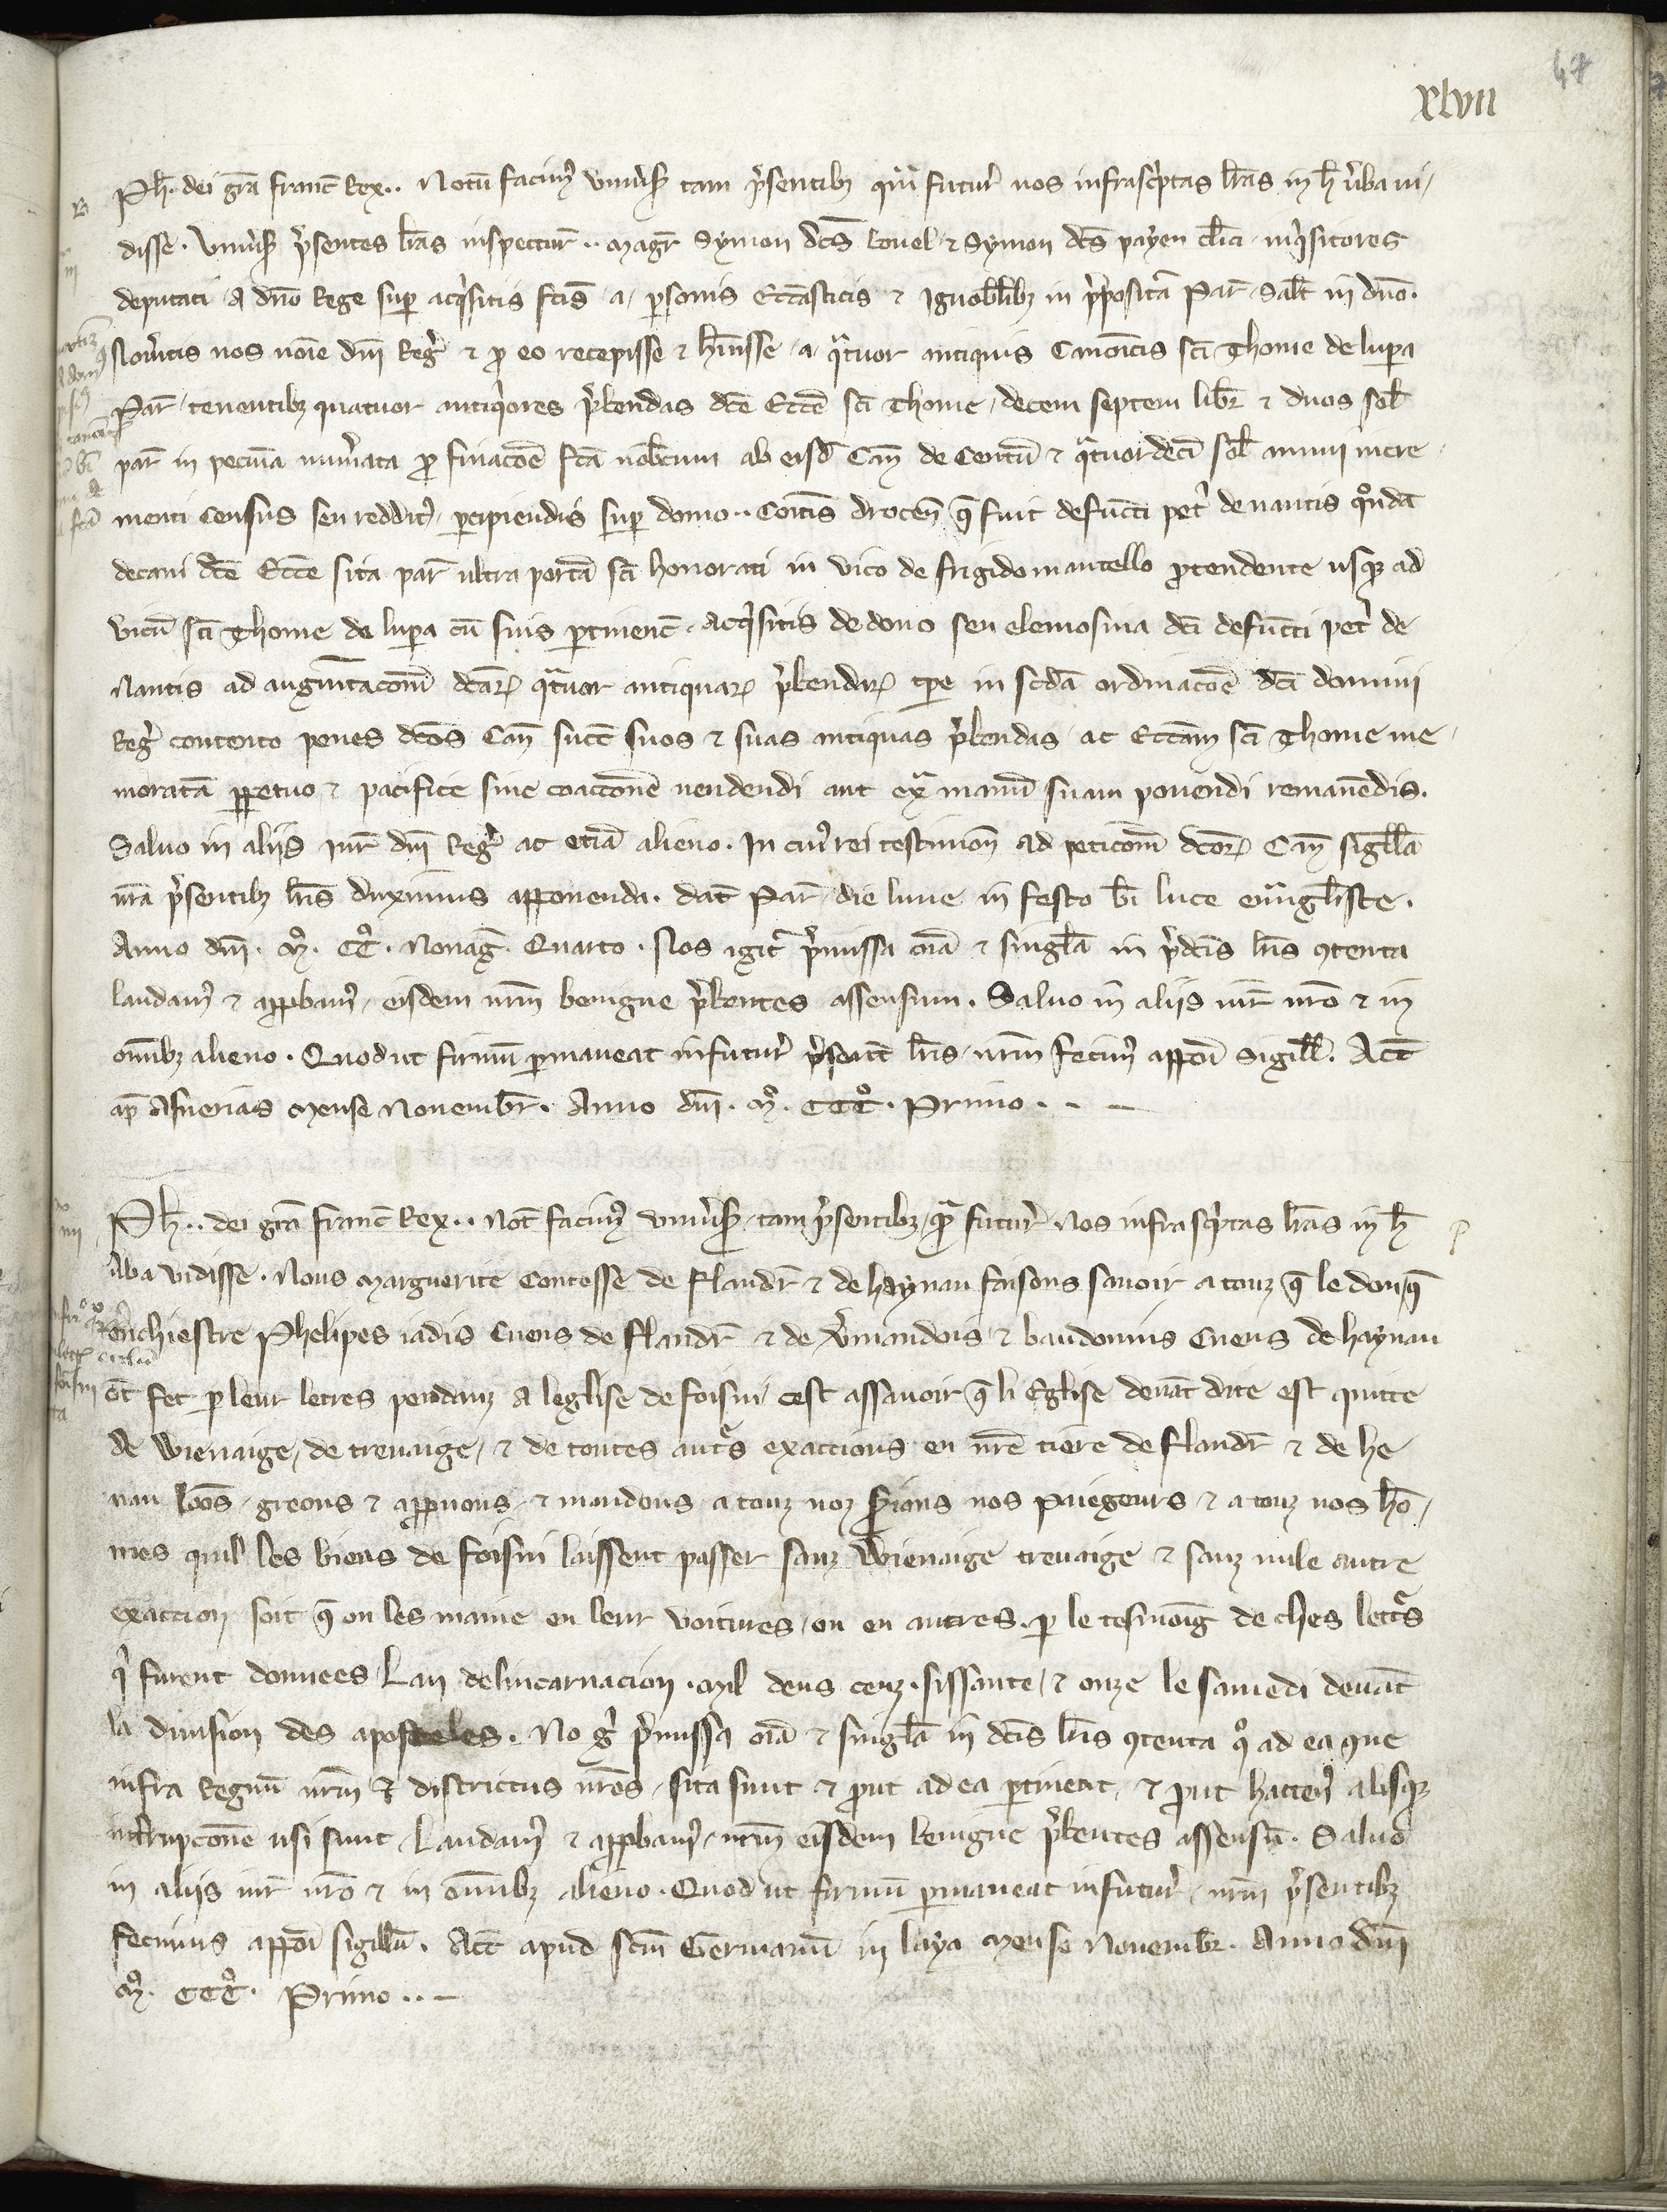 47
xlvii
Ph̄. dei gr̄a franc̄ Rex.. Notū facimꝰ vniu̾s̾ tam p̾sentibꝫ qͣm futur̾ nos infrasc̾ptas lr̄as in h̄ u̾ba ui
disse. Vniu̾s̾ p̾sentes lr̄as inspectur̄.. Magr̄ Symon dc̄s Louel ⁊ Symon dc̄s payen cl̄ici inq̾sitores
deputati a dn̄o Rege sup̱ acq̾sitis fc̄is a ꝑsonis Ecc̄asticis ⁊ Ignobilibꝫ in p̾positā Par̄ Salt̄ in dn̄o.
Nou̾itis nos noīe dn̄i Reg̾ ⁊ pro eo recepisse ⁊ hūisse a qͣtuor antiquis Canoīcis sc̄i Thome de lupa
Par̄ tenentibꝫ quatuor antiq̾ores p̾bendas dc̄e Ecc̄e sc̄i Thome decem septem libr̄ ⁊ duos sol̄
par̄ in pecuīa num̾ata ꝓ finacōe fc̄a nob̄cum ab eisd̄ Can̄ de Centū ⁊ qͣtuordeci sol̄ annui incre
menti census seu reddit̾ percipiendis sup̱ domo.. Comit̄s drocen̄ q̄ fuit defūcti pet̾ de nantis qͦndā
decani dc̄e Ecc̄e sita par̄ ultra portā sc̄i honorati in vico de frigidomantello ꝓtendente usqꝫ ad
vicū sc̄i Thome de lupa cū suis ꝑtinenc̄. Acq̾sitis de dono seu elemosina dc̄i defūcti pet̾ de
Nantis ad augm̄tacōm dc̄arꝝ qͣtuor antiquarꝝ p̾bendarꝝ tp̄e in sc̄dā ordinacōe dc̄i domini
Reg̾ contento penes dc̄os Can̄ succ̄ suos ⁊ suas antiquas p̾bendas ac Ecc̄am sc̄i Thome me
moratā ꝑpetuo ⁊ pacifice sine coacc̄one uendendi aut exͣ manū suam ponendi remanēdis.
Saluo in aliis iur̄ dn̄i Reg̾ ac etiā alieno. In cuiꝰ rei testimon̄ ad peticōm dc̄orꝝ Can̄ sigill̄a
nr̄a p̾sentibꝫ lr̄is duximus apponenda. Dat̄ Par̄ die lune in festo bī luce euͣnglīste.
Anno dn̄i. M̊. CC̊. Nonag̾. Quarto. Nos igit̾ p̾missa oīa ⁊ singl̄a in p̾dc̄is lr̄is ꝯtenta
laudamꝰ ⁊ aꝓbamꝰ eisdem nr̄m benigne p̾bentes assensum. Saluo in aliis iur̄ nr̄o ⁊ in
omībꝫ alieno. Quod ut firmū ꝑmaneat infutur̾ p̾sent̄ lr̄is nr̄m fecimꝰ appoī sigill̄. Act̄
ap̄ Asnerias Mense Nouembr̄. Anno dn̄i. M̊. CCC̊. Primo.
Ph̄.. dei gr̄a franc̄ Rex.. Not̄ facimꝰ vniu̾s̾ tam p̾sentibꝫ qͣ futur̾ Nos infrasc̾ptas lr̄as in h̄
u̾ba vidisse. Nous Marguerite Contesse de flandr̄ ⁊ de haynau faisons sauoir a touz q̄ le don q̄
anchiestre Phelipes iadis Cuens de flandr̄ ⁊ de v̾mandois ⁊ baudouins Cuens de haynau
ōt fet ꝑ leur letres pendanz a leglise de foisni cest assauoir q̄ li Eglise deuāt dite est quitte
de wienaige, de treuaige, ⁊ de toutes autͣs exactions en nr̄e tierre de flandr̄ ⁊ de he
nau loōs greons ⁊ aꝓuons ⁊ mandons a touz noz s̾ians nos paiegeurs ⁊ a touz nos hō
mes quil les biens de foisni laissent passer sanz wienaige treuaige ⁊ sanz nule autre
exaction soit q̄ on les maine en leur voitures, ou en autres. ꝑ le tesmoig̾ de ches lettͣs
q̾ furent donnees Lan delincarnacion. Mil deus cenz. sissante, ⁊ onze le samedi deuāt
la diuision des aposteles. No g̾ p̾missa oīa ⁊ singl̄a in dc̄is lr̄is ꝯtenta qͦ ad ea que
infra Regnū nr̄m ⁊ districtus nr̄os sita sunt ⁊ ꝓut ad ea ꝑtineat, ⁊ ꝓut hacten̾ absqꝫ
int̾rupcōne usi sunt laudamꝰ ⁊ aꝓbamꝰ, nr̄m eisdem benigne p̾bentes assensū. Saluo
in aliis iur̄ nr̄o ⁊ in omībꝫ alieno. Quod ut firmū ꝑmaneat infutur̾, nr̄m p̾sentibꝫ
fecimus appoī sigillū. Act̄ apud sc̄m Germanū in laya Mense Nouembr̄. Anno dn̄i
M̊. CCC̊. Primo..